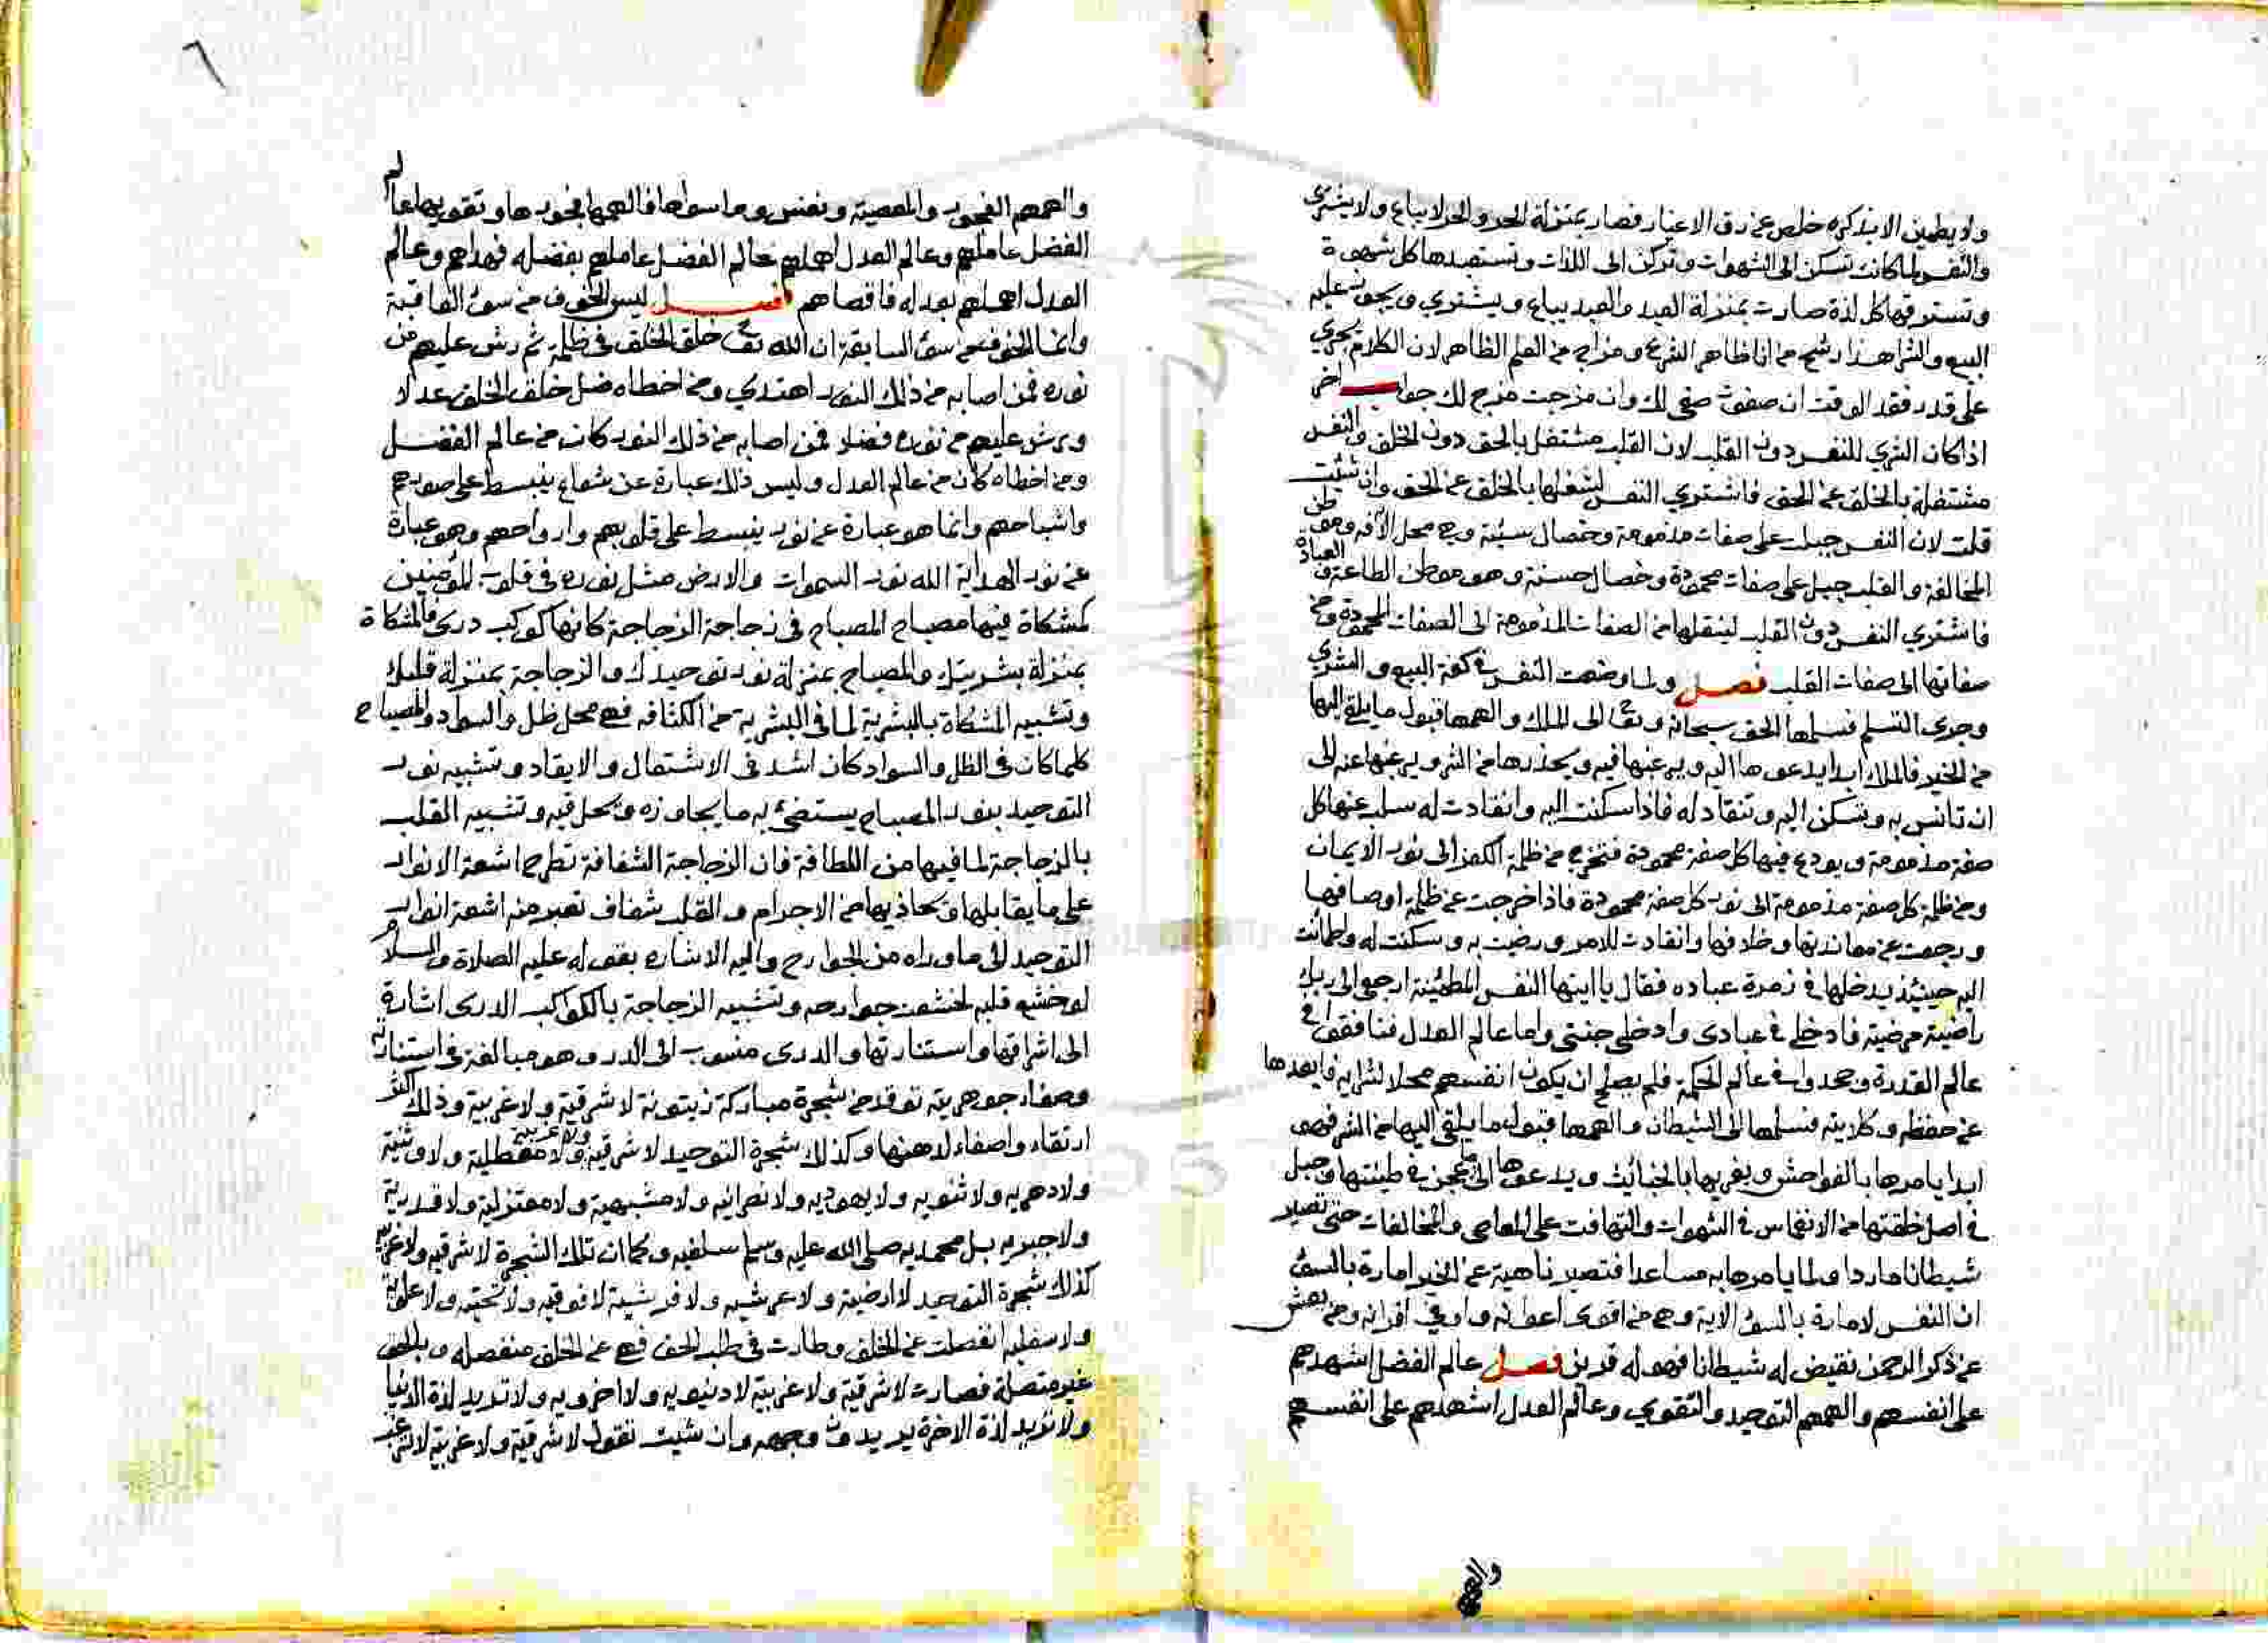 ولا يطمئن الا بذكره خلص عن رق الاغيار فصار بمنزلة الحر والحر لا يباع ولا يشترى
والنفس لما كانت تسكن الى الشهوات وتركن الى اللذات وتستعبدها كل شهوة
وتسترقها كل لذة صارت بمنزلة العبد والعبد يباع ويشتري ويجوز عليه
البيع والشرا هذا رشح من انا ظاهر الشرع ومزاج من العلم الظاهر لان الكلام يجري
على قدر فقد الوقت ان صفوت صفى لك وان مزجت مزج لك جواب اخر
اذا كان الشري للنفس دون القلب لان القلب مشتغل بالحق دون الخلق والنفس
مشتغلة بالخلق عن الحق فاشتري النفس لشغلها بالخلق عن الحق وان شئت
قلت لان النفس جبلت على صفات مذمومة وخصال سيئة وهي محل الافه وموطن
المخالفة والقلب جبل على صفات محمودة وخصال حسنة وهو موطن الطاعة والعبادة
فاشتري النفس دون القلب لينقلها من الصفات المذمومة الى الصفات المحمودة ومن
صفاتها الى صفات القلب فصل ولما وضعت النفس في كفة البيع والشري
وجرى التسلم فسلمها الحق سبحانه وتعا الى الملك والهمها قبول ما يلقى اليها
من الخير فالملك ابدا يدعوها اليه ويرغبها فيه ويحذرها من الشر ويرغبها عنه الى
ان تانس به وتسكن اليه وتنقاد له فاذا سكنت اليه وانقادت له سلب عنها كل
صفة مذمومة ويودع فيها كل صفة محمودة فتخرج من ظلمة الكفر الى نور الايمان
ومن ظلمة كل صفة مذمومة الى نور كل صفة محمودة فاذا خرجت عن ظلمة اوصافها
ورجعت عن معاندتها وخلافها وانقادت للامر ورضيت به وسكنت له واطمانت
اليه حينئذ يدخلها في زمرة عباده فقال يا ايتها النفس المطمئنة ارجعي الى ربك
راضية مرضية فادخلي في عبادى وادخلي جنتي واما عالم العدل فنافقوا في
عالم القدرة وجحدوا في عالم الحكمة فلم يصلح ان يكون انفسهم محلا لشرايه فابعدها
عن حفظه وكلايته فسلمها الى الشيطان والهمها قبول ما يلقى اليها من الشر فهو
ابدا يامرها بالفواحش ويغريها بالخبائث ويدعوها الى ما عجن في طينتها وجبل
في اصل خلقتها من الانغماس في الشهوات والتهافت على المعاصي والمخالفات حتى تصير
شيطانا ماردا ولما يامرها به مساعدا فتصير ناهية عن الخير امارة بالسوء
ان النفس لامارة بالسوء الاية وهي من اقوى اعوانه واوفي اقرانه ومن يعش
عن ذكر الرحمن نقيض له شيطانا فهو له قرين فصل عالم الفضل اشهدهم
على انفسهم والهمهم التوحيد والتقوي وعالم العدل اشهدهم على انفسهم
والهمهم
٦
والهمهم الفجور والمعصية ونفس وما سواها فالهمها فجورها وتقويها عالم
الفضل عاملهم وعالم العدل اهملهم عالم الفضل عاملهم بفضله فهداهم وعالم
العدل اهملهم بعدله فاقصاهم فصل ليس الخوف من سوء العاقبة
وانما الخوف من سوء السابقة ان الله تعا خلق الخلق في ظلمة ثم رش عليهم من
نوره فمن اصابه من ذلك النور اهتدي ومن اخطاه ضل خلق الخلق عدلا
ورش عليهم من نوره فضلا فمن اصابه من ذلك النور كان من عالم الفضل
ومن اخطاه كان من عالم العدل وليس ذلك عبارة عن شعاع ينبسط على صورهم
واشباحهم وانما هو عبارة عن نور ينبسط على قلوبهم وارواحهم وهو عبارة
عن نور الهداية الله نور السموات والارض مثل نوره في قلوب المؤمنين
كمشكاة فيها مصباح المصباح في زجاجة الزجاجة كانها كوكب درى فالمشكاة
بمنزلة بشريتك والمصباح بمنزلة نور توحيدك والزجاجة بمنزلة قلبك
وتشبيه المشكاة بالبشرية لما في البشرية من الكثافه فهي محل ظل والسواد والمصباح
كلما كان في الظل والسواد كان اشد في الاشتعال والايقاد وتشبيه نور
التوحيد بنور المصباح يستضئ به ما يجاوزه ويحل فيه وتشبيه القلب
بالزجاجة لما فيها من اللطافة فان الزجاجة الشفافة تطرح اشعة الانوار
على ما يقابلها ويحاذيها من الاجرام والقلب شفاف تعبر منه اشعة انوار
التوحيد الى ما وراه من الجوارح واليه الاشاره بقوله عليه الصلاة والسلام
لو خشع قلبه لخشعت جوارحه وتشبيه الزجاجة بالكواكب الدرى اشارة
الى اشراقها واستنارتها والدرى منسوب الى الدر وهو مبالغة في استنارته
وصفاء جوهريته توقد من شجرة مباركة زيتونة لا شرقية ولا غربية وذلك اكثر
ارتقاء واصفاء لدهنها وكذلك شجرة التوحيد لا شرقيه ولا غربية ولا معطلية ولا وثنية
ولا دهريه ولا ثنويه ولا يهوديه ولا نصرانيه ولا مشبهية ولا معتزلية ولا قدرية
ولا جبريه بل محمديه صلى الله عليه وسلم سلفيه وكما ان تلك الشجرة لا شرقيه ولا غربية
كذلك شجرة التوحيد لا ارضية ولا عرشيه ولا فرشية لا فوقيه ولا تحتيه ولا علوية
ولا سفليه انفصلت عن الخلق وطارت في طلب الحق فهي عن الخلق منفصله وبالحق
غير متصلة فصارت لا شرقية ولا غربية لا دنيويه ولا اخرويه ولا تريد لذة الدنيا
ولا تريد لذة الاخرة يريدون وجهه وان شيت تقول لا شرقية ولا غربية لا